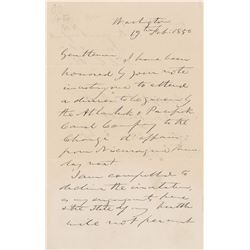 Washington
19th Feb. 1850
Gentlemen,
I have been
honoured by your note
inviting me to attend
a dinner to be given by
the Atlantic & Pacific
Canal Company to the
Chargé d'affaires
from Nicaragua
day next.
I am compelled to
decline the invitation,
as my engagements &
the state of my health
will not permit